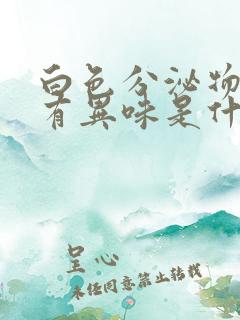 白色分泌物
有異味是什
呈心
未经同意禁止转载